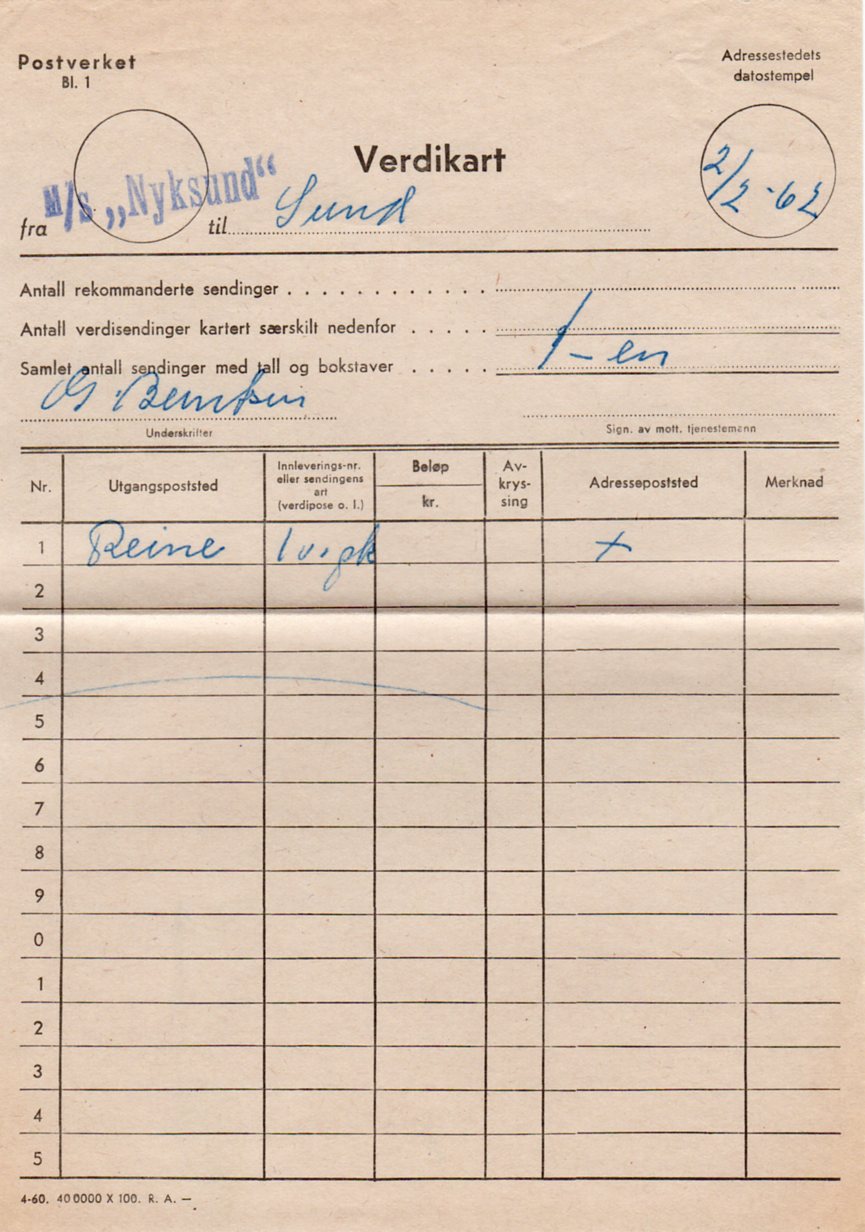 Postverket
Bl. 1
Adressestedets
datostempel
Verdikart
2/2-62
fra M/s „Nyksund“ til Sund
Antall rekommanderte sendinger
Antall verdisendinger kartert særskilt nedenfor
Samlet antall sendinger med tall og bokstaver 1 - en
Underskrifter
Sign. av mott. tjenestemann
Nr. Utgangspoststed Innleverings-nr. eller sendingens art (verdipose o. l.) Beløp kr. Av-krys-sing Adressepoststed Merknad
1 Reine 1 v.pk +
2
3
4
5
6
7
8
9
0
1
2
3
4
5
4-60. 400000 X 100. R. A. —